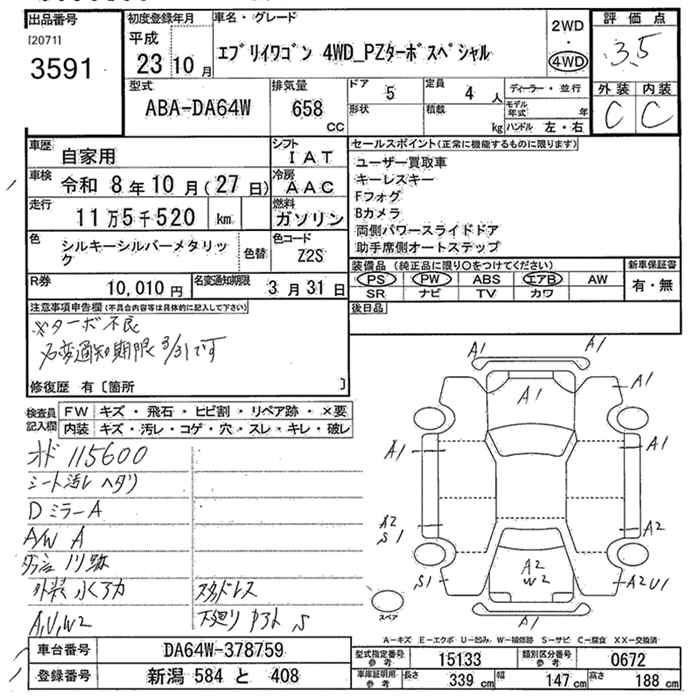 出品番号
[2071]
3591
初度登録年月
平成
23 10 月
車名・グレード
エブリイワゴン 4WD_PZターボスペシャル
2WD
・
4WD
評価点
3.5
外装 内装
C C
型式
ABA-DA64W
排気量
658
CC
ドア 5
定員 4 人
形状
積載 kg
ディーラー・並行
モデル年式 年
ハンドル 左・右
車歴
自家用
シフト
IAT
車検 令和 8 年 10 月 (27 日)
冷房
AAC
走行
11 万 5 千 520 km
燃料
ガソリン
色
シルキーシルバーメタリック
色替
色コード
Z2S
R券
10,010 円
名変通知期限
3 月 31 日
セールスポイント(正常に機能するものに限ります)
ユーザー買取車
キーレスキー
Fフォグ
Bカメラ
両側パワースライドドア
助手席側オートステップ
装備品 (純正品に限り○をつけてください)
PS PW ABS エアB AW
SR ナビ TV カワ
新車保証書
有・無
後日品
注意事項申告欄(不具合内容等は具体的に記入して下さい)
※ターボ不良
名変通知期限 3/31です
修復歴 有 [箇所 ]
検査員記入欄
FW キズ・飛石・ヒビ割・リペア跡・×要
内装 キズ・汚レ・コゲ・穴・スレ・キレ・破レ
オド 115600
シート汚レ ヘタリ
Dミラー A
A/W A
外装 小く凹
スタッドレス
A,U,W2
下廻り S
A1
A1
A1
A1
A1
A1
A2
S1
A2
A2
W2
S1
A2 U1
A1
スペア
A−キズ E−エクボ U−凹み W−補修跡 S−サビ C−腐食 XX−交換済
車台番号
DA64W-378759
登録番号
新潟 584 と 408
型式指定番号 参考
15133
類別区分番号 参考
0672
車庫証明用 参考
長さ 339 cm
幅 147 cm
高さ 188 cm